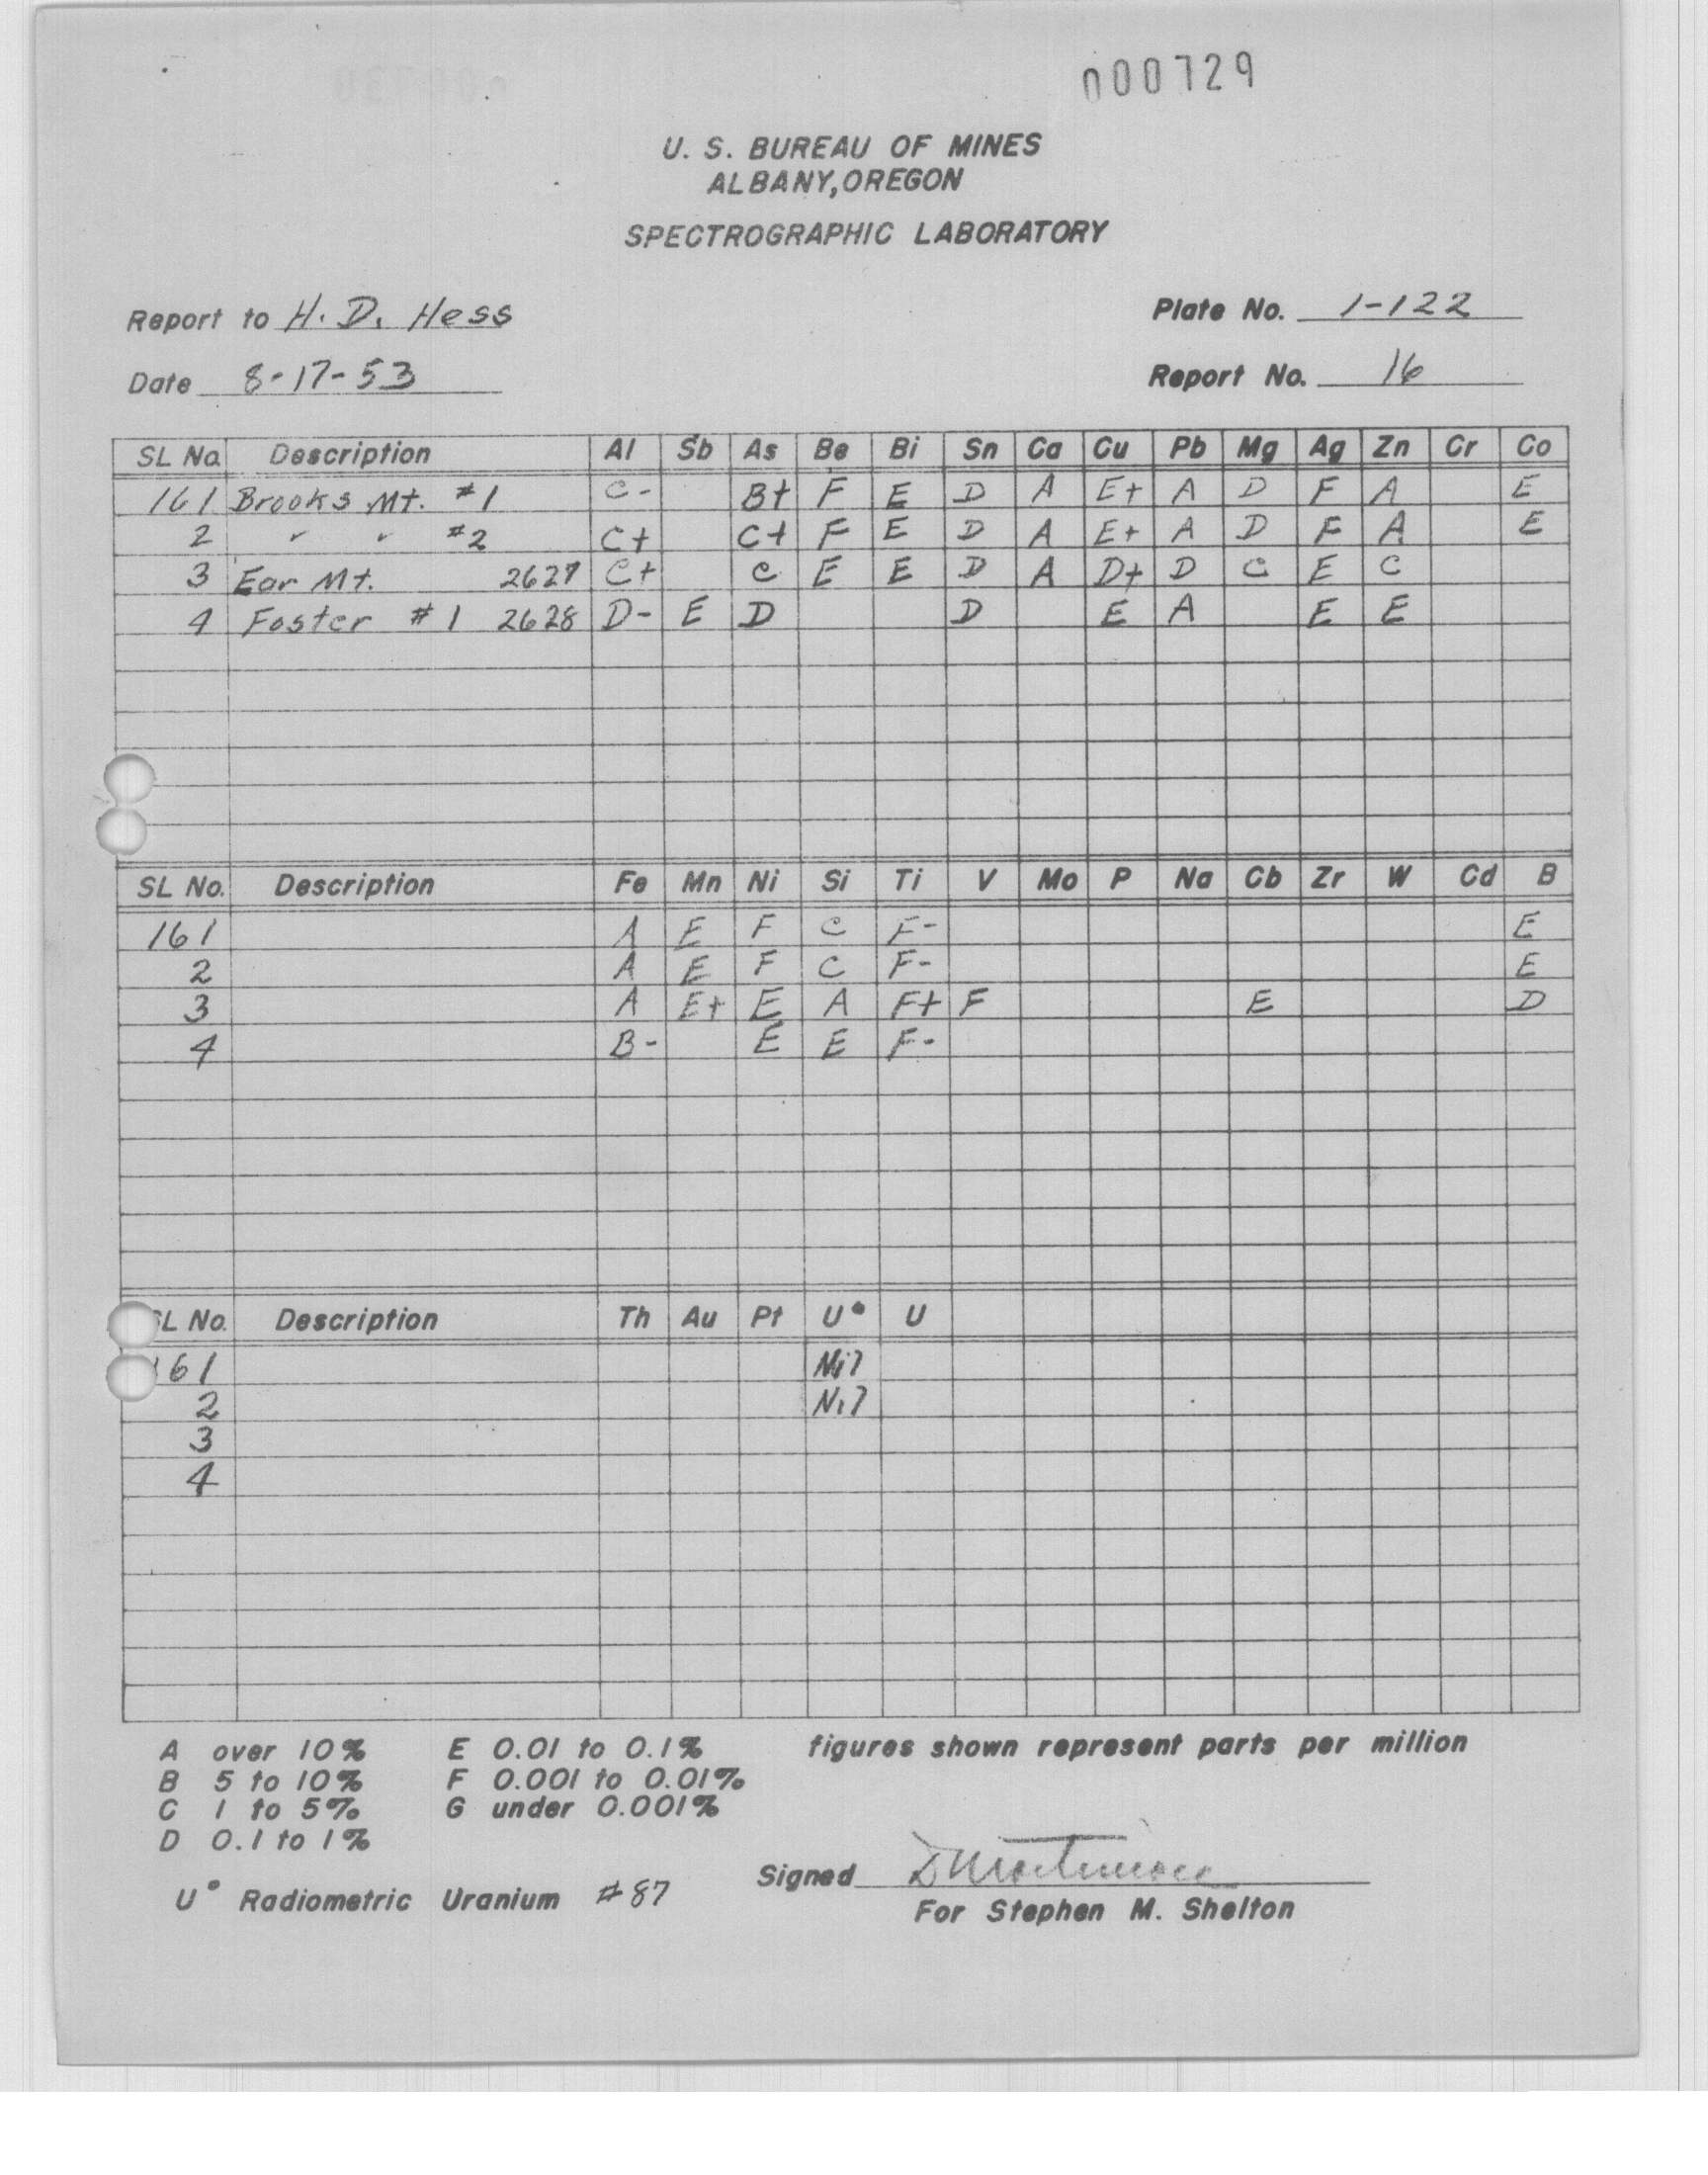 000729
U. S. BUREAU OF MINES
ALBANY, OREGON
SPECTROGRAPHIC LABORATORY
Report to H. D. Hess Plate No. 1-122
Date 8-17-53 Report No. 16
SL No. Description Al Sb As Be Bi Sn Ca Cu Pb Mg Ag Zn Cr Co
161 Brooks Mt. #1 C- B+ F E D A E+ A D F A E
2 " " #2 C+ C+ F E D A E+ A D F A E
3 Ear Mt. 2627 C+ C E E D A D+ D C E C
4 Foster #1 2628 D- E D D E A E E
SL No. Description Fe Mn Ni Si Ti V Mo P Na Cb Zr W Cd B
161 A E F C F- E
2 A E F C F- E
3 A E+ E A F+ F E D
4 B- E E F-
SL No. Description Th Au Pt U° U
161 Nil
2 Nil
3
4
A over 10% E 0.01 to 0.1% figures shown represent parts per million
B 5 to 10% F 0.001 to 0.01%
C 1 to 5% G under 0.001%
D 0.1 to 1%
Signed
U° Radiometric Uranium #87
For Stephen M. Shelton